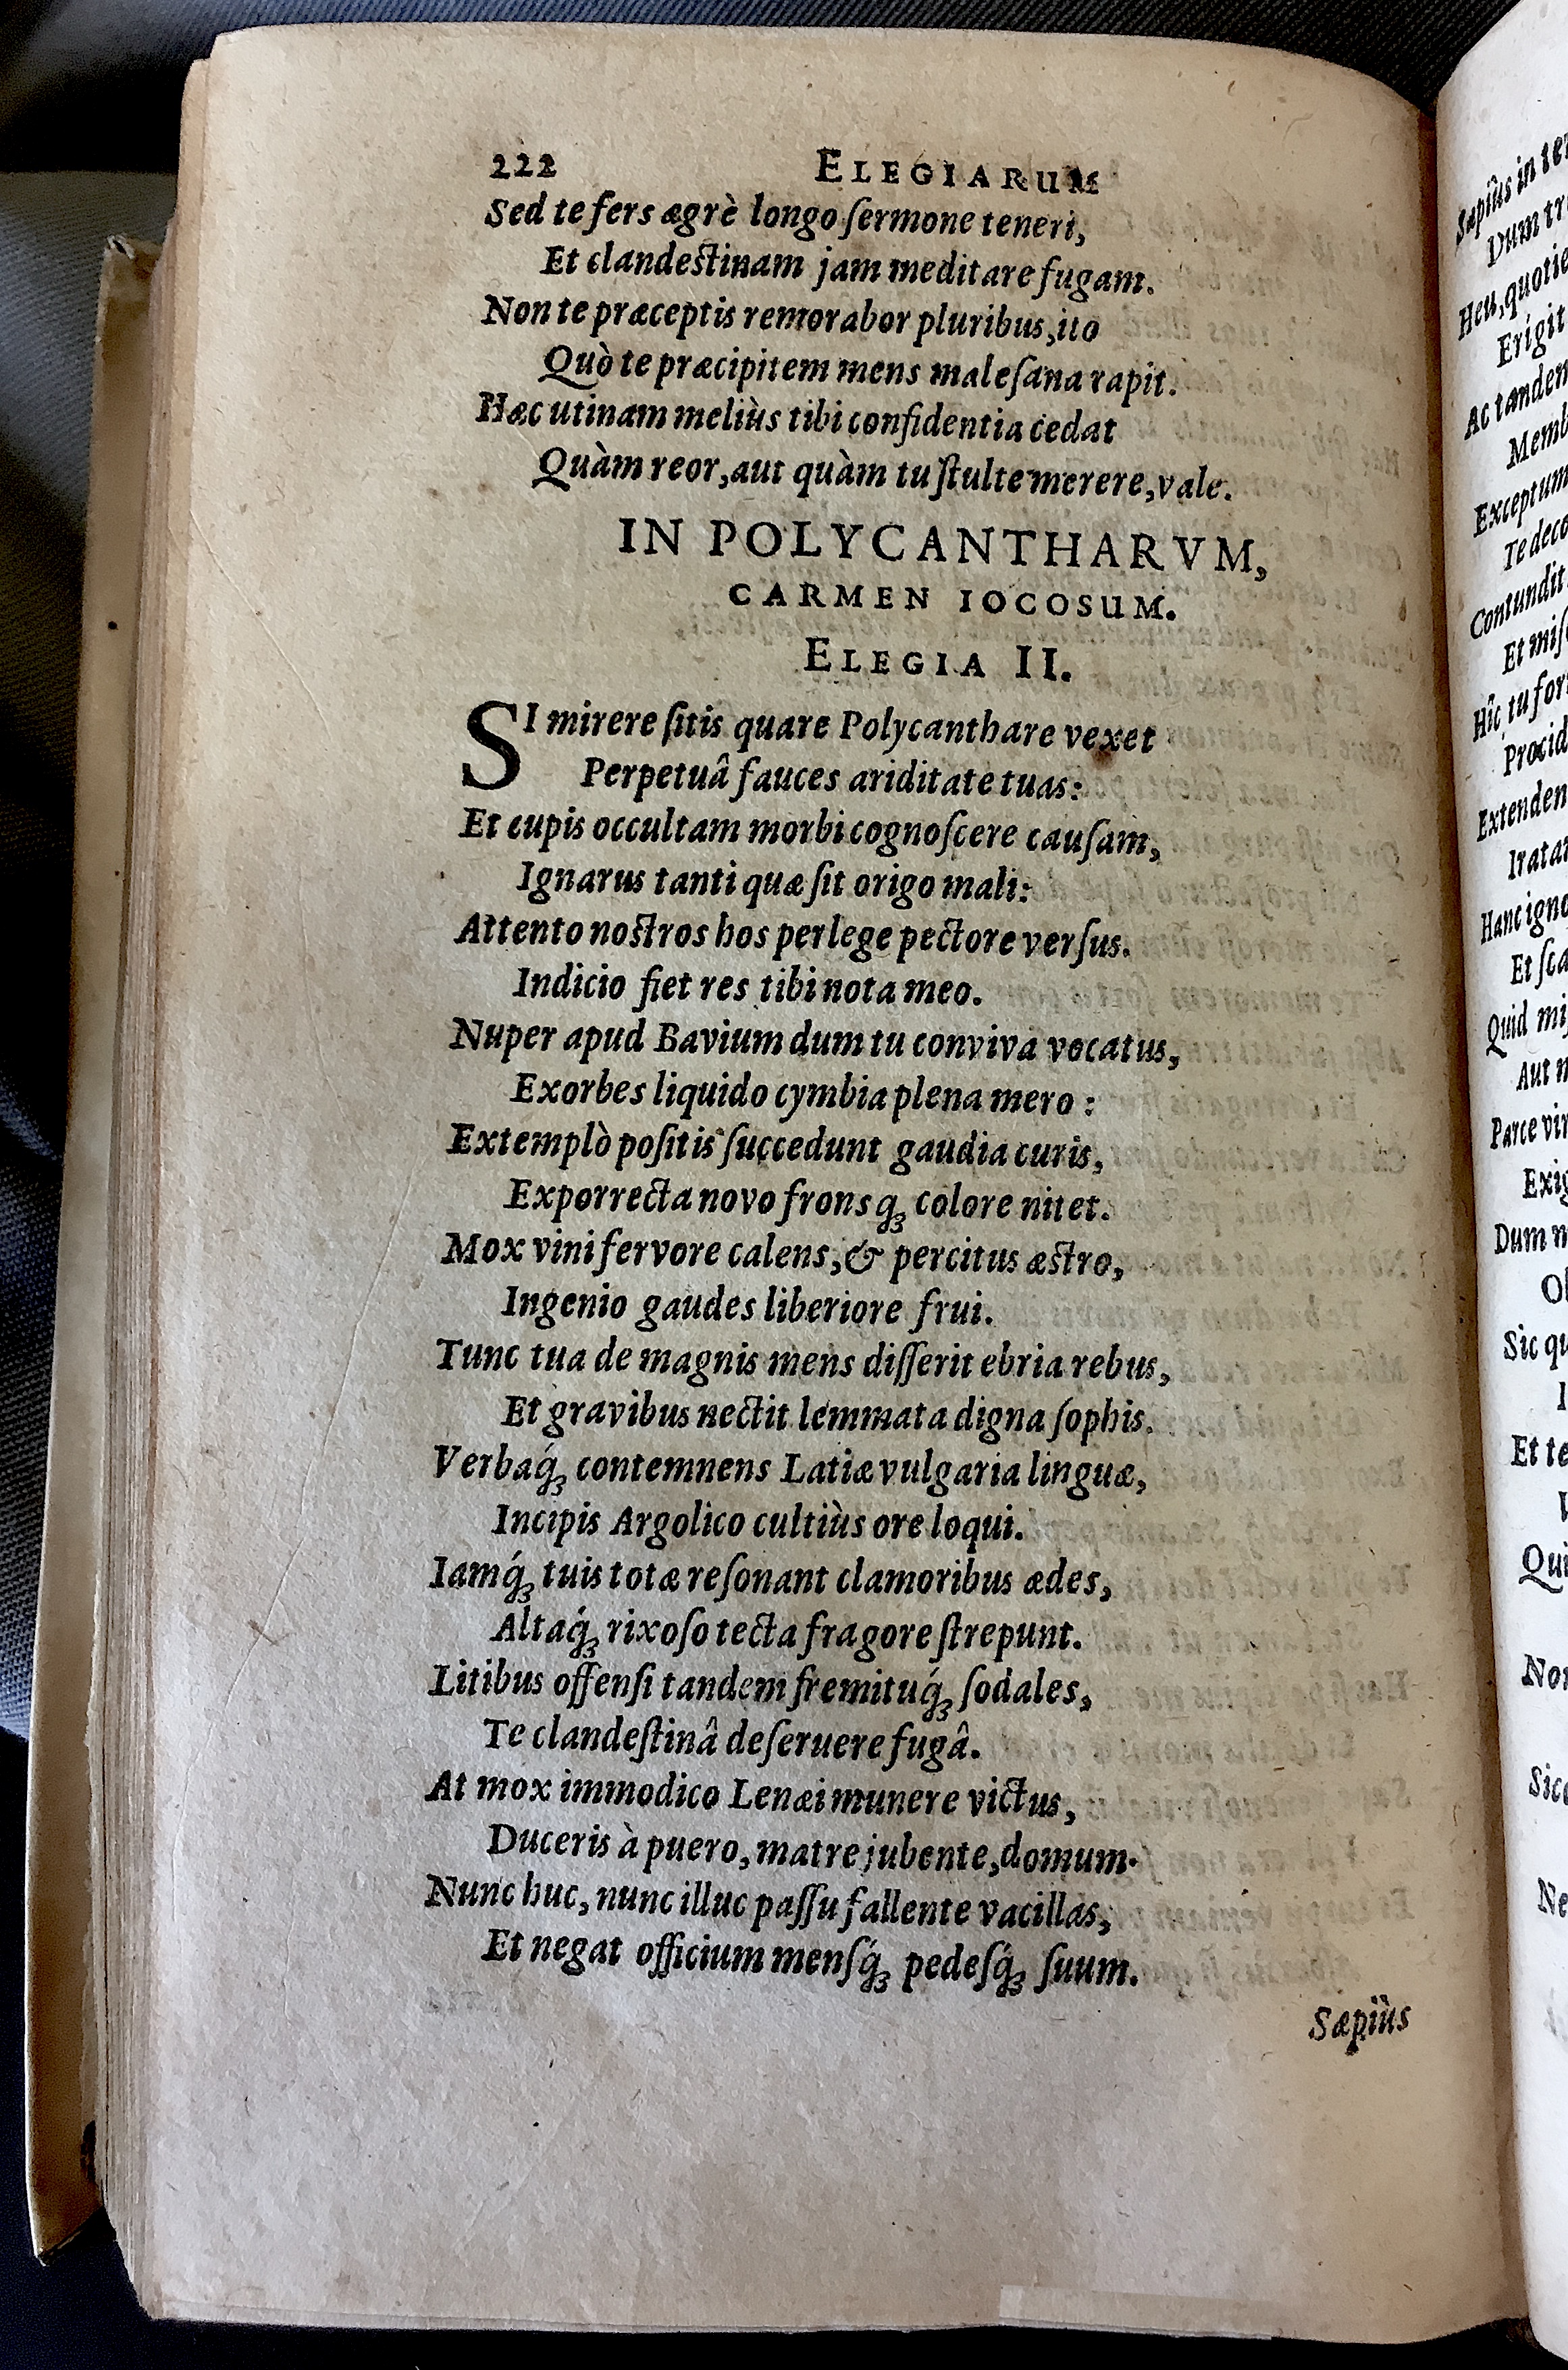 222 ELEGIARUM
Sed te fers ægrè longo ſermone teneri,
Et clandeſtinam jam meditare fugam.
Non te præceptis remorabor pluribus, ito
Quò te præcipitem mens maleſana rapit.
Hæc utinam meliùs tibi confidentia cedat
Quàm reor, aut quàm tu ſtulte merere, vale.
IN POLYCANTHARVM,
CARMEN IOCOSUM.
ELEGIA II.
SI mirere ſitis quare Polycanthare vexet
Perpetuâ fauces ariditate tuas:
Et cupis occultam morbi cognoſcere cauſam,
Ignarus tanti quæ ſit origo mali:
Attento noſtros hos perlege pectore verſus.
Indicio fiet res tibi nota meo.
Nuper apud Bavium dum tu conviva vocatus,
Exorbes liquido cymbia plena mero:
Extemplò poſitis ſuccedunt gaudia curis,
Exporrecta novo fronsq́ꝫ colore nitet.
Mox vini fervore calens, & percitus æſtro,
Ingenio gaudes liberiore frui.
Tunc tua de magnis mens diſſerit ebria rebus,
Et gravibus nectit lemmata digna ſophis.
Verbaq́ꝫ contemnens Latiæ vulgaria linguæ,
Incipis Argolico cultiùs ore loqui.
Iamq́ꝫ tuis totæ reſonant clamoribus ædes,
Altaq́ꝫ rixoſo tecta fragore ſtrepunt.
Litibus offenſi tandem fremituq́ꝫ ſodales,
Te clandeſtinâ deſeruere fugâ.
At mox immodico Lenæi munere victus,
Duceris à puero, matre jubente, domum.
Nunc huc, nunc illuc paſſu fallente vacillas,
Et negat officium menſq́ꝫ pedeſq́ꝫ ſuum.
Sæpiùs
Sæpiùs in
Dum
Heu, quotie
Erigit
Ac tandem
Memb
Exceptum
Te deco
Contundit
Et miſ
Hîc tu for
Procid
Extenden
Iratat
Hanc igno
Et ſca
Quid miſ
Aut n
Parce vin
Exig
Dum n
Ol
Sic qu
I
Et te
Qui
Non
Sic
Ne